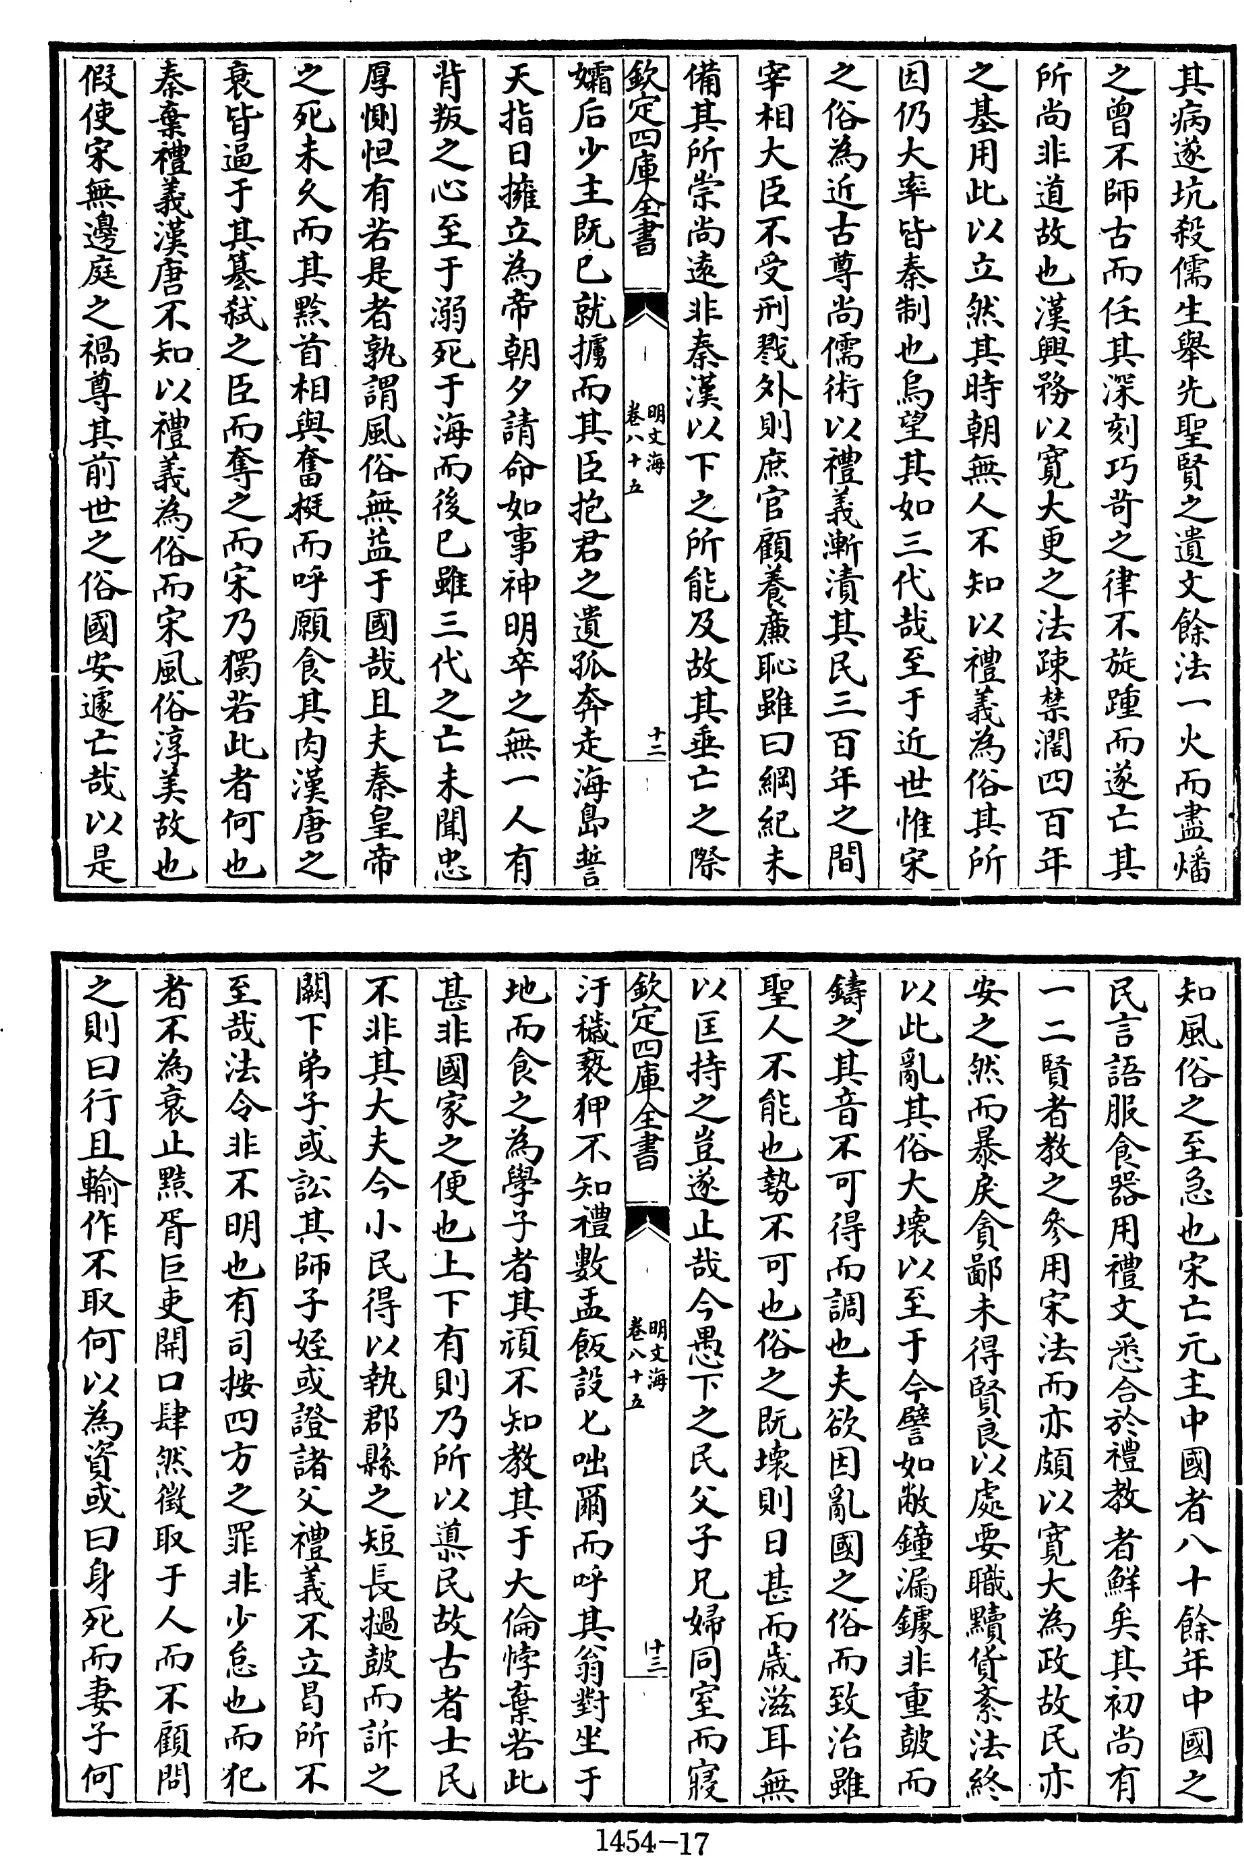 其病遂坑殺儒生舉先聖賢之遺文餘法一火而盡燔
之曾不師古而任其深刻巧苛之律不旋踵而遂亡其
所尚非道故也漢興務以寛大更之法疎禁濶四百年
之基用此以立然其時朝無人不知以禮義為俗其所
因仍大率皆秦制也烏望其如三代哉至于近世惟宋
之俗為近古尊尚儒術以禮義漸漬其民三百年之間
宰相大臣不受刑戮外則庶官顧養亷恥雖曰綱紀未
備其所崇尚遠非秦漢以下之所能及故其垂亡之際
欽定四庫全書
明文海
卷八十五
十二
孀后少主既已就擄而其臣抱君之遺孤奔走海島誓
天指日擁立為帝朝夕請命如事神明卒之無一人有
背叛之心至于溺死于海而後已雖三代之亡未聞忠
厚惻怛有若是者孰謂風俗無益于國哉且夫秦皇帝
之死未久而其黔首相與奮梃而呼願食其肉漢唐之
衰皆逼于其簒弑之臣而奪之而宋乃獨若此者何也
秦棄禮義漢唐不知以禮義為俗而宋風俗淳美故也
假使宋無邊庭之禍尊其前世之俗國安遽亡哉以是
知風俗之至急也宋亡元主中國者八十餘年中國之
民言語服食器用禮文悉合於禮教者鮮矣其初尚有
一二賢者教之參用宋法而亦頗以寛大為政故民亦
安之然而暴戾貪鄙未得賢良以處要職黷貨紊法終
以此亂其俗大壞以至于今譬如敝鐘漏鐻非重皷而
鑄之其音不可得而調也夫欲因亂國之俗而致治雖
聖人不能也勢不可也俗之既壞則日甚而歲滋耳無
以匡持之豈遂止哉今愚下之民父子兄婦同室而寢
欽定四庫全書
明文海
卷八十五
十三
汙穢䙝狎不知禮數盂飯設匕咄爾而呼其翁對坐于
地而食之為學子者其頑不知教其于大倫悖棄若此
甚非國家之便也上下有則乃所以㯼民故古者士民
不非其大夫今小民得以執郡縣之短長撾皷而訴之
闕下弟子或訟其師子姪或證諸父禮義不立曷所不
至哉法令非不明也有司按四方之罪非少怠也而犯
者不為衰止黠胥巨吏開口肆然徵取于人而不顧問
之則曰行且輸作不取何以為資或曰身死而妻子何
1454-17